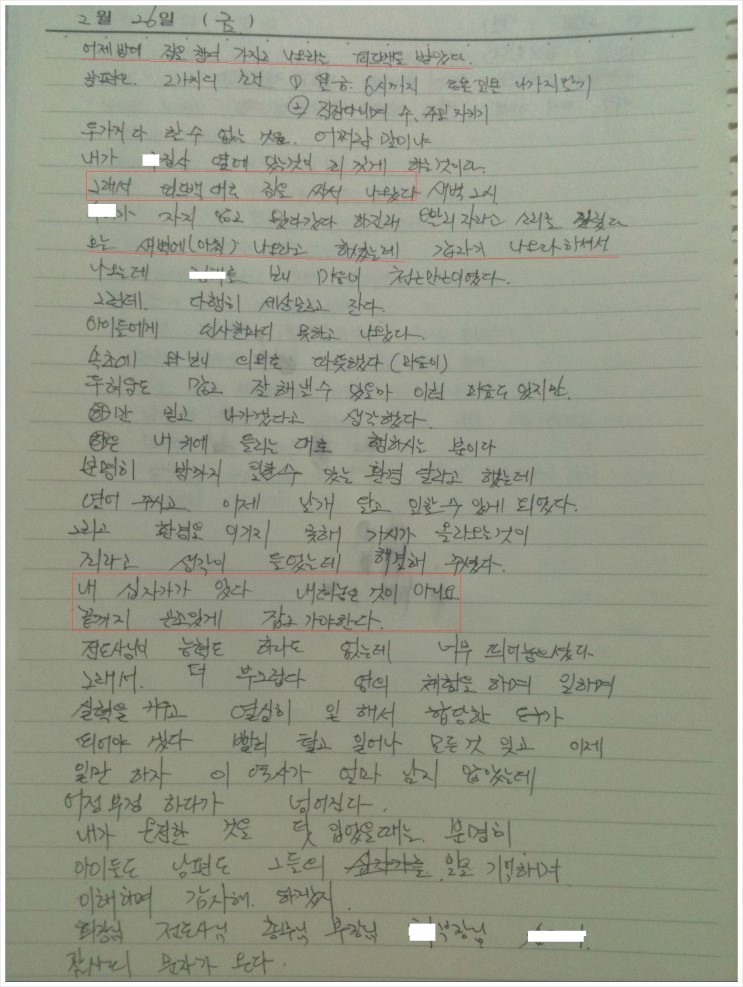 2월 26일 (금)
어제밤에 짐을 챙겨 가지고 나오라는 피드백을 받았다.
남편은 2가지의 조건 ① 연금. 6시까지 나가지 않기
② 직장다니며 수, 주일 지키기
두가지 다 할 수 없는 것을. 어쩌란 말이냐
내가 집사 옆에 있는것이 죄 짓게 하는것이다.
그래서 피드백 대로 짐을 싸서 나왔다 새벽 2시
가 자지 않고 왔다갔다 하길래 빨리 자라고 소리를 질렀다
오늘 새벽에(아침) 나오라고 하셨는데 갑자기 나오라하셔서
나오는데 보니 마음이 천근만근이었다.
그런데. 다행히 세상모르고 잔다.
아이들에게 인사한마디 못하고 나왔다.
속초에 와보니 의외로 따뜻했다
두려움도 많고 잘 해낼수 있을까 이런 마음도 있지만.
만 믿고 나가겠다고 생각했다.
은 내 귀에 들리는 대로 행하시는 분이다
분명히 밤까지 일할수 있는 환경 달라고 했는데
열어 주시고. 이제 날개 달고 일할수 있게 되었다.
그리고 환경을 이기지 못해 가시가 올라오는것이
죄라고 생각이 들었는데 해결해 주셨다.
내 십자가가 있다 내려놓는 것이 아니요
끝까지 끈기있게 잡고 가야한다.
전도사님이 능력도 하나도 없는데 너무 띄어놓으셨다
그래서. 더 부끄럽다 영의 체험을 하며 일하며
실력을 키우고 열심히 일 해서 합당한 도구가
되어야 겠다 빨리 털고 일어나 모든것 잊고 이제
일만 하자 이 역사가 얼마 남지 않았는데
어정부정 하다가 넘어진다.
내가 온전한 것을 덧 입었을때는 분명히
아이들도 남편도 그들의 일도 기억하며
이해하며 감사해. 하겠지
회장님 전도사님 총무님 부장님 부장님
집사의 문자가 온다.